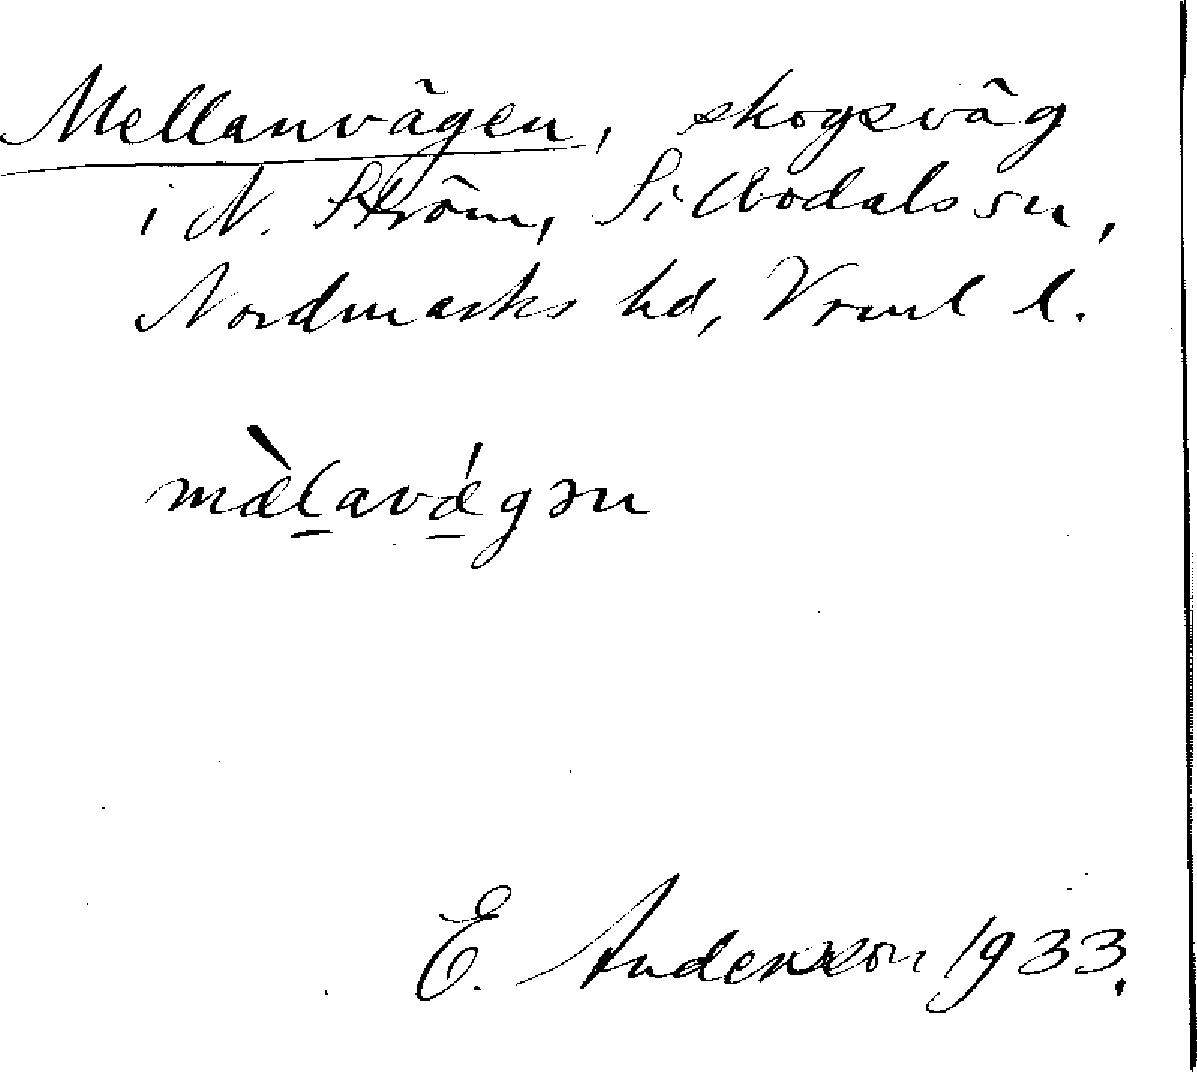 Mellanvägen, skogsväg
i N. Ström, Silbodals sn,
Nordmarks hd, Vrml l.
mæ̀l̠avǽ̠gən
E. Andersson 1933.